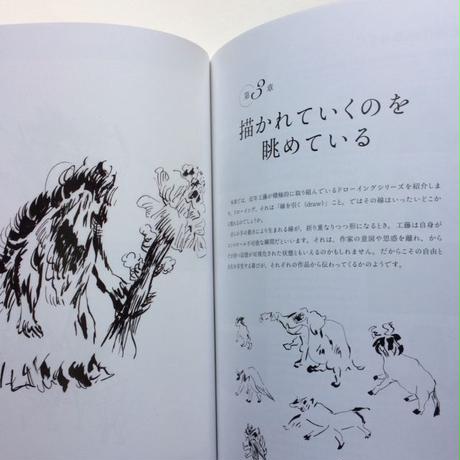 第3章
描かれていくのを
眺めている
本章では、近年工藤が積極的に取り組んでいるドローイングシリーズを紹介しま
す。ドローイング、それは「線を引く(draw)」こと。ではその線はいったいどこか
ら現れるのでしょう。
線が、折り重なりつつ形になるとき、工藤は自身が
コントロール不可能な瞬間だといいます。それは、作家の意図や思惑を離れ、から
状態ともいえるのかもしれません。だからこその自由と
喜びが、それぞれの作品から伝わってくるかのようです。